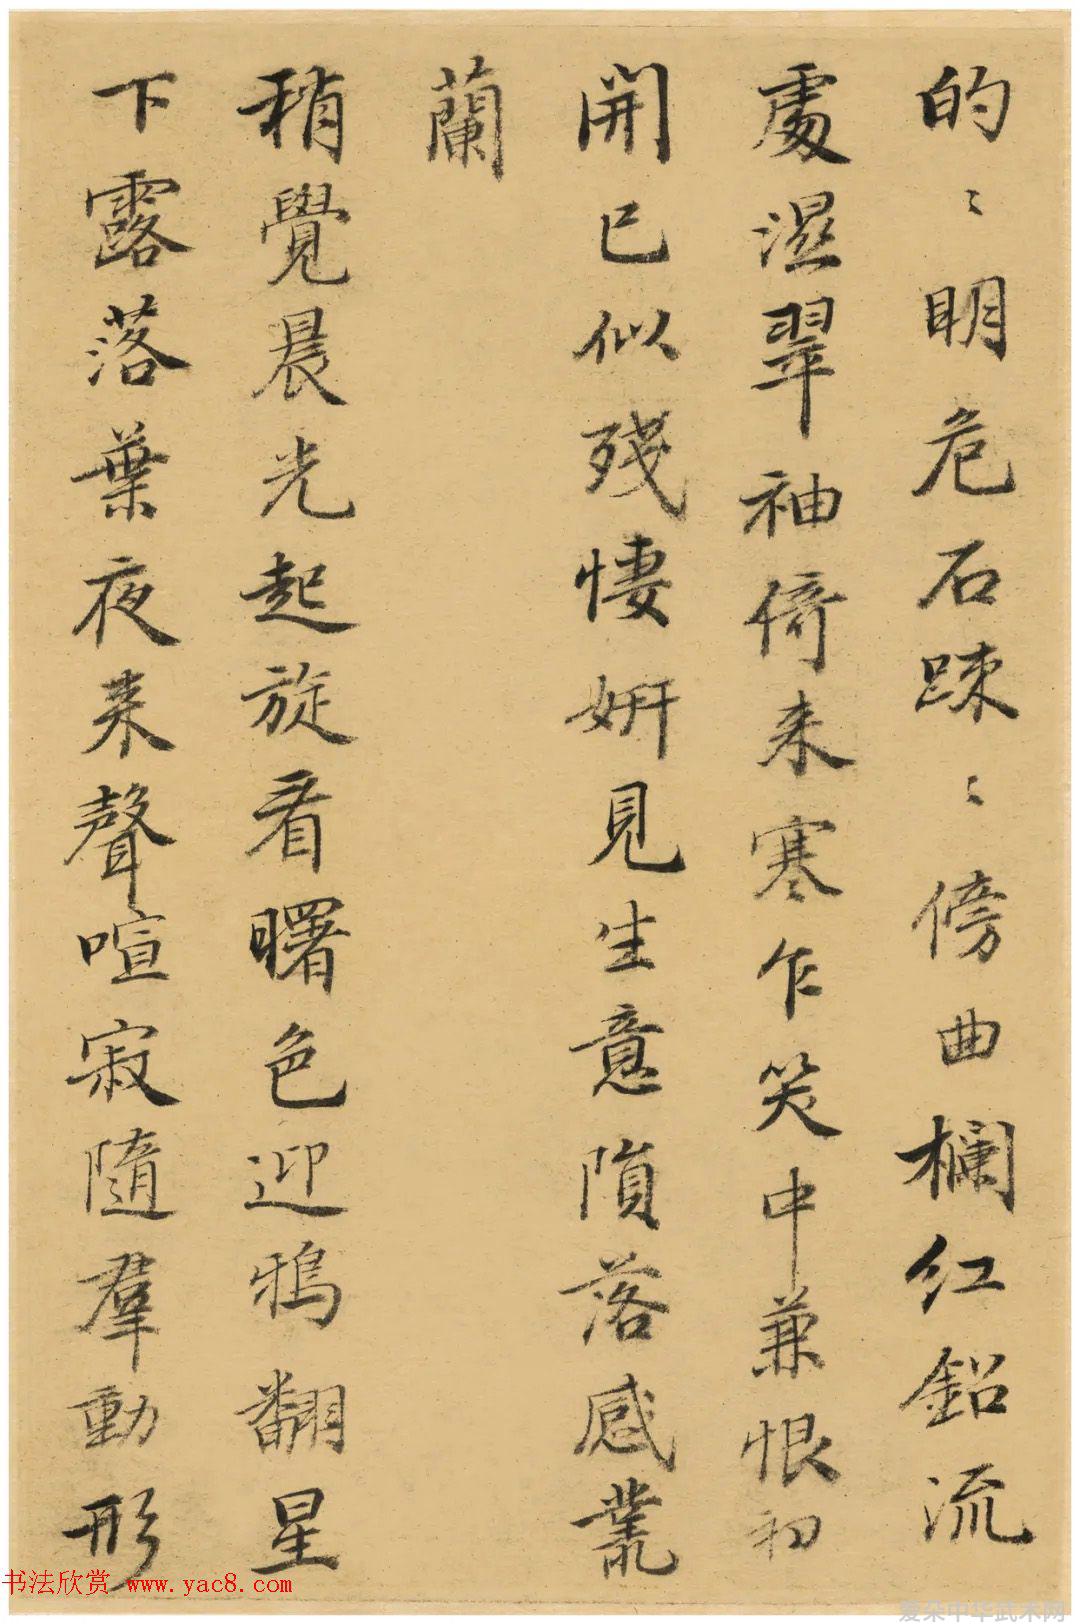 的〻明危石踈〻傍曲欄红鉛流
處濕翠袖倚来寒乍笑中兼恨初
開已似殘悽妍見生意隕落感叢
蘭
稍覺晨光起旋看曙色迎鴉翻星
下露落葉夜来聲喧寂隨羣動形
书法欣赏 www.yac8.com
爱朵中华武术网